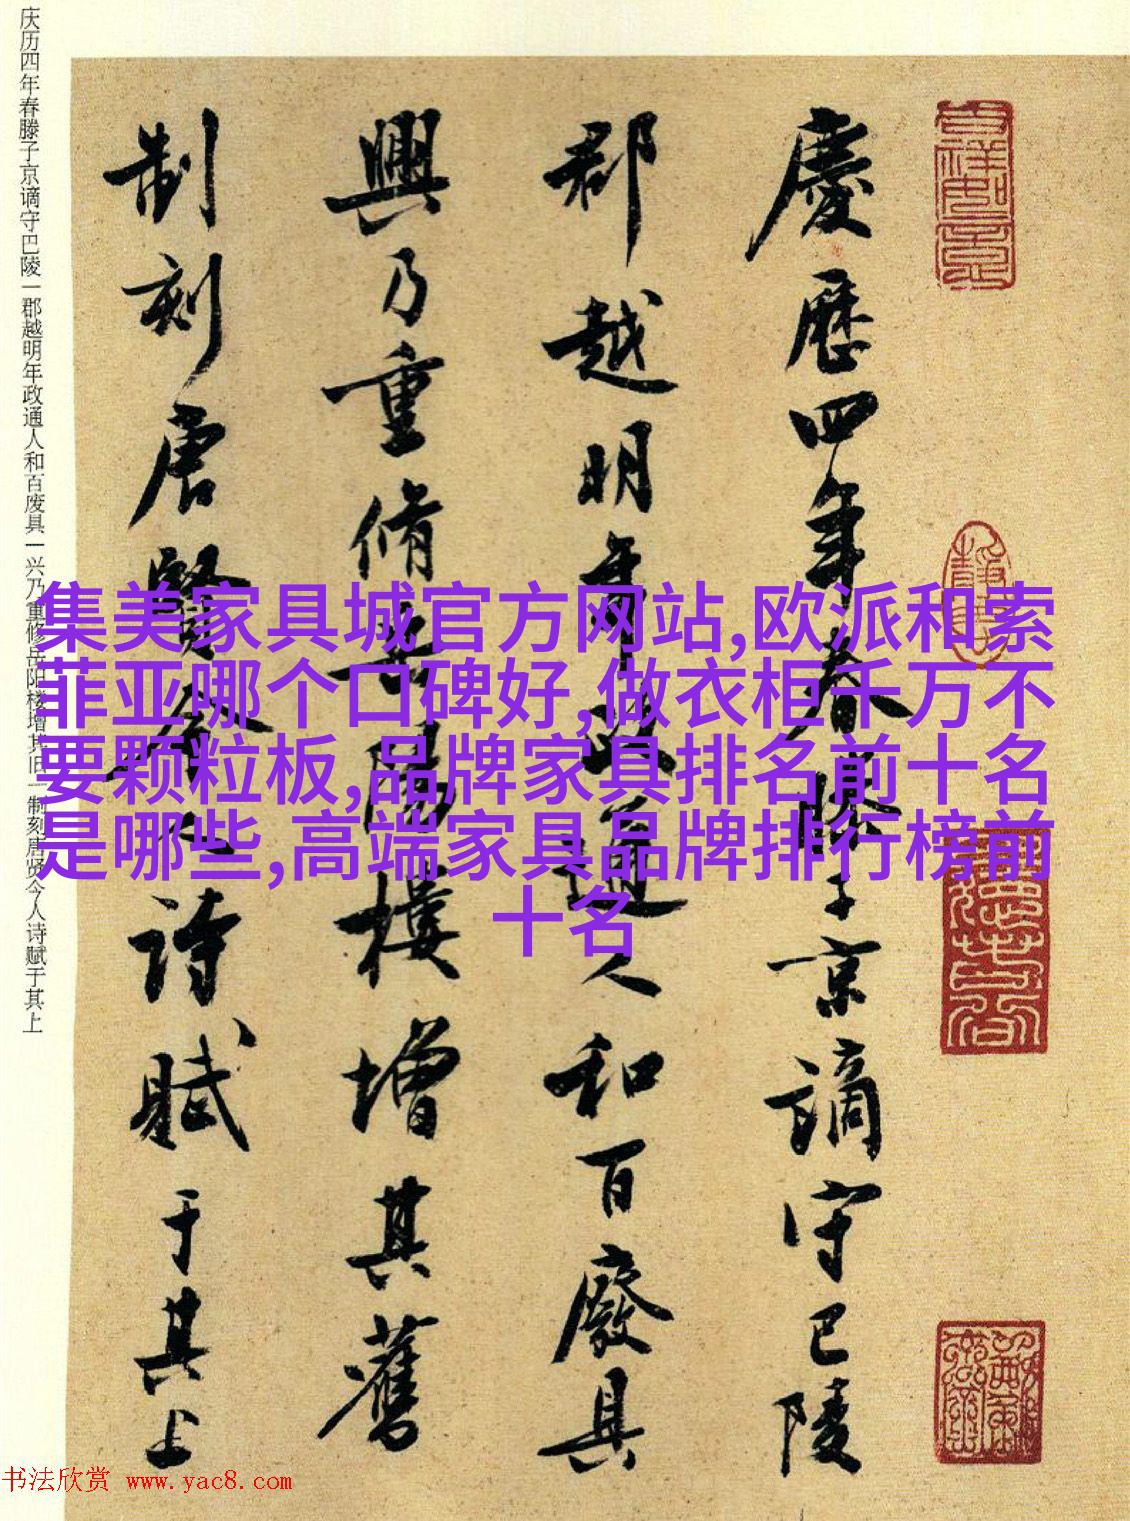 慶歷四年春滕子京謫守巴陵
郡越明年政通人和百廢具
興乃重脩岳陽樓增其舊
制刻唐賢今人詩賦于其上
庆历四年春滕子京谪守巴陵一郡越明年政通人和百废具一兴乃重修岳阳楼增其旧一制刻唐贤今人诗赋于其上
集美家具城官方网站,欧派和索
菲亚哪个口碑好,做衣柜千万不
要颗粒板,品牌家具排名前十名
是哪些,高端家具品牌排行榜前
十名
书法欣赏 www.yac8.com